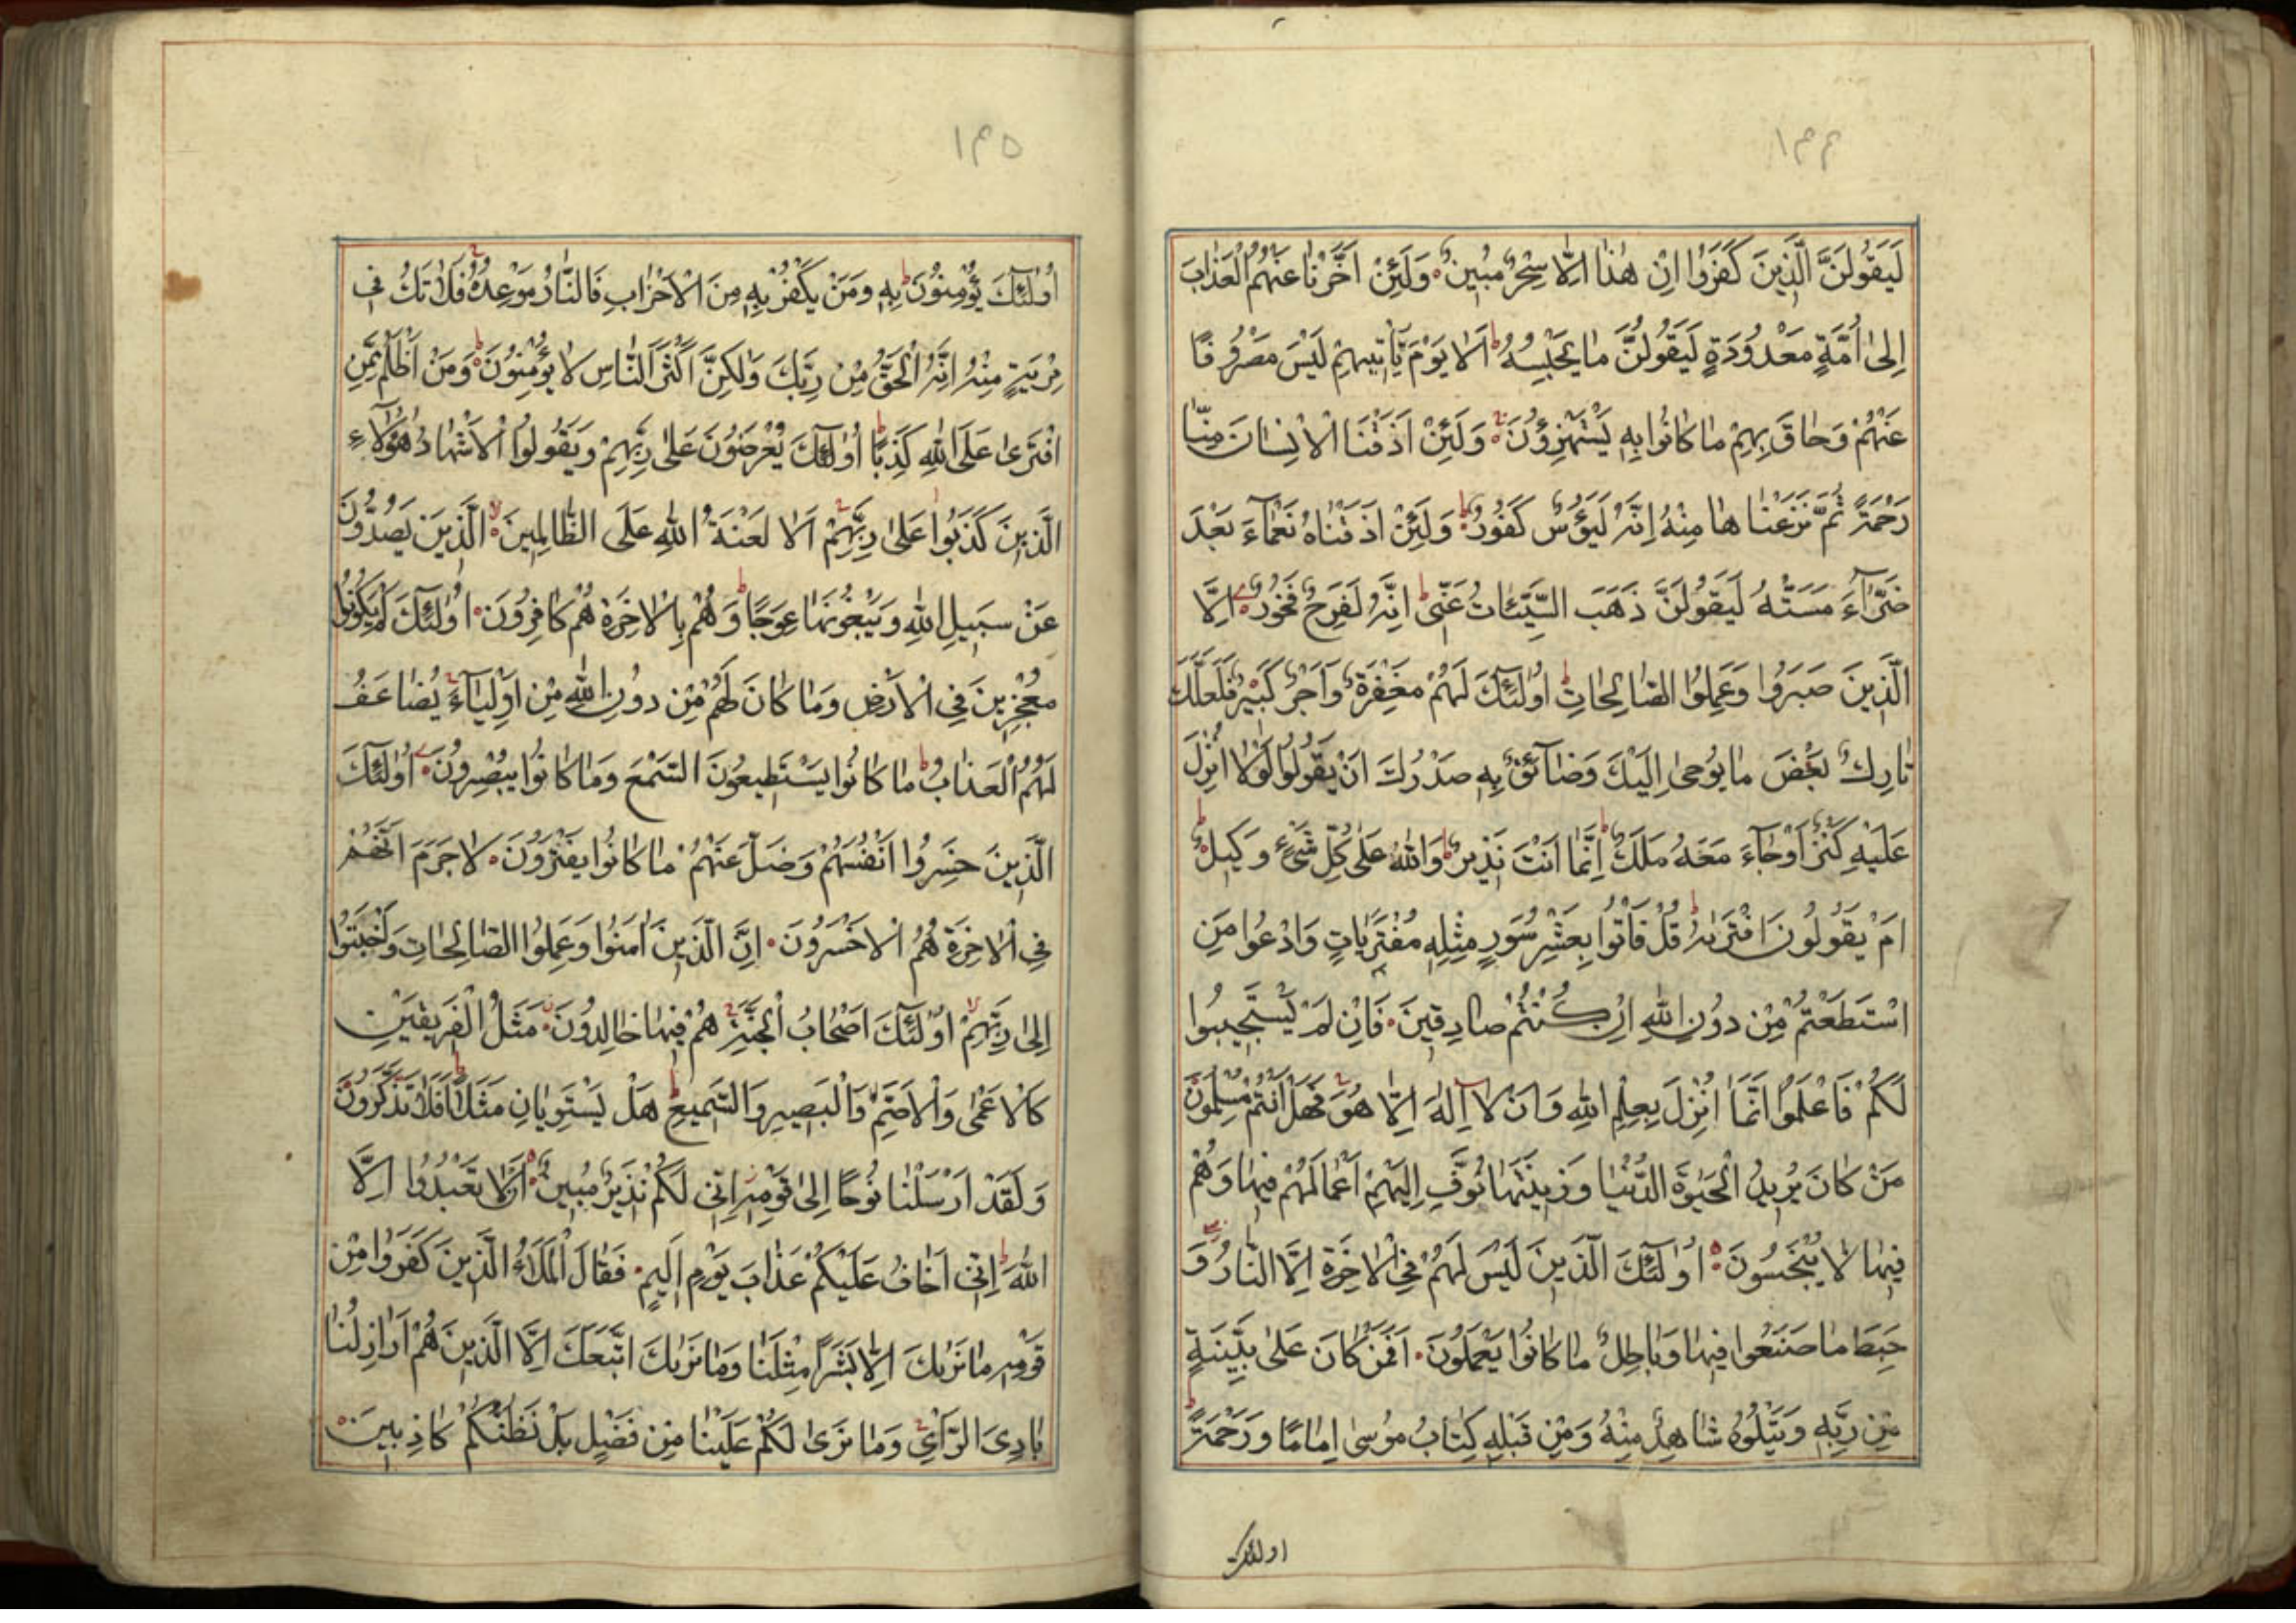 ١٣٤
لَيَقُولَنَّ الَّذِينَ كَفَرُوا اِنْ هٰذَا اِلَّا سِحْرٌ مُبِينٌ وَلَئِنْ اَخَّرْنَا عَنْهُمُ الْعَذَابَ
اِلٰى اُمَّةٍ مَعْدُودَةٍ لَيَقُولُنَّ مَا يَحْبِسُهُ اَلَا يَوْمَ يَأْتِيهِمْ لَيْسَ مَصْرُوفًا
عَنْهُمْ وَحَاقَ بِهِمْ مَا كَانُوا بِهِ يَسْتَهْزِؤُنَ وَلَئِنْ اَذَقْنَا الْاِنْسَانَ مِنَّا
رَحْمَةً ثُمَّ نَزَعْنَاهَا مِنْهُ اِنَّهُ لَيَؤُسٌ كَفُورٌ وَلَئِنْ اَذَقْنَاهُ نَعْمَآءَ بَعْدَ
ضَرَّآءَ مَسَّتْهُ لَيَقُولَنَّ ذَهَبَ السَّيِّئَاتُ عَنِّى اِنَّهُ لَفَرِحٌ فَخُورٌ اِلَّا
الَّذِينَ صَبَرُوا وَعَمِلُوا الصَّالِحَاتِ اُولٰٓئِكَ لَهُمْ مَغْفِرَةٌ وَاَجْرٌ كَبِيرٌ فَلَعَلَّكَ
تَارِكٌ بَعْضَ مَا يُوحٰى اِلَيْكَ وَضَآئِقٌ بِهِ صَدْرُكَ اَنْ يَقُولُوا لَوْلَا اُنْزِلَ
عَلَيْهِ كَنْزٌ اَوْ جَآءَ مَعَهُ مَلَكٌ اِنَّمَا اَنْتَ نَذِيرٌ وَاللّٰهُ عَلٰى كُلِّ شَىْءٍ وَكِيلٌ
اَمْ يَقُولُونَ افْتَرٰىهُ قُلْ فَأْتُوا بِعَشْرِ سُوَرٍ مِثْلِهِ مُفْتَرَيَاتٍ وَادْعُوا مَنِ
اسْتَطَعْتُمْ مِنْ دُونِ اللّٰهِ اِنْ كُنْتُمْ صَادِقِينَ فَاِنْ لَمْ يَسْتَجِيبُوا
لَكُمْ فَاعْلَمُوا اَنَّمَا اُنْزِلَ بِعِلْمِ اللّٰهِ وَاَنْ لَا اِلٰهَ اِلَّا هُوَ فَهَلْ اَنْتُمْ مُسْلِمُونَ
مَنْ كَانَ يُرِيدُ الْحَيٰوةَ الدُّنْيَا وَزِينَتَهَا نُوَفِّ اِلَيْهِمْ اَعْمَالَهُمْ فِيهَا وَهُمْ
فِيهَا لَا يُبْخَسُونَ اُولٰٓئِكَ الَّذِينَ لَيْسَ لَهُمْ فِى الْاٰخِرَةِ اِلَّا النَّارُ وَ
حَبِطَ مَا صَنَعُوا فِيهَا وَبَاطِلٌ مَا كَانُوا يَعْمَلُونَ اَفَمَنْ كَانَ عَلٰى بَيِّنَةٍ
مِنْ رَبِّهِ وَيَتْلُوهُ شَاهِدٌ مِنْهُ وَمِنْ قَبْلِهِ كِتَابُ مُوسٰى اِمَامًا وَرَحْمَةً
اولئك
١٣٥
اُولٰٓئِكَ يُؤْمِنُونَ بِهِ وَمَنْ يَكْفُرْ بِهِ مِنَ الْاَحْزَابِ فَالنَّارُ مَوْعِدُهُ فَلَا تَكُ فِى
مِرْيَةٍ مِنْهُ اِنَّهُ الْحَقُّ مِنْ رَبِّكَ وَلٰكِنَّ اَكْثَرَ النَّاسِ لَا يُؤْمِنُونَ وَمَنْ اَظْلَمُ مِمَّنِ
افْتَرٰى عَلَى اللّٰهِ كَذِبًا اُولٰٓئِكَ يُعْرَضُونَ عَلٰى رَبِّهِمْ وَيَقُولُوا الْاَشْهَادُ هٰٓؤُلَآءِ
الَّذِينَ كَذَبُوا عَلٰى رَبِّهِمْ اَلَا لَعْنَةُ اللّٰهِ عَلَى الظَّالِمِينَ الَّذِينَ يَصُدُّونَ
عَنْ سَبِيلِ اللّٰهِ وَيَبْغُونَهَا عِوَجًا وَهُمْ بِالْاٰخِرَةِ هُمْ كَافِرُونَ اُولٰٓئِكَ لَمْ يَكُونُوا
مُعْجِزِينَ فِى الْاَرْضِ وَمَا كَانَ لَهُمْ مِنْ دُونِ اللّٰهِ مِنْ اَوْلِيَآءَ يُضَاعَفُ
لَهُمُ الْعَذَابُ مَا كَانُوا يَسْتَطِيعُونَ السَّمْعَ وَمَا كَانُوا يُبْصِرُونَ اُولٰٓئِكَ
الَّذِينَ خَسِرُوا اَنْفُسَهُمْ وَضَلَّ عَنْهُمْ مَا كَانُوا يَفْتَرُونَ لَا جَرَمَ اَنَّهُمْ
فِى الْاٰخِرَةِ هُمُ الْاَخْسَرُونَ اِنَّ الَّذِينَ اٰمَنُوا وَعَمِلُوا الصَّالِحَاتِ وَاَخْبَتُوا
اِلٰى رَبِّهِمْ اُولٰٓئِكَ اَصْحَابُ الْجَنَّةِ هُمْ فِيهَا خَالِدُونَ مَثَلُ الْفَرِيقَيْنِ
كَالْاَعْمٰى وَالْاَصَمِّ وَالْبَصِيرِ وَالسَّمِيعِ هَلْ يَسْتَوِيَانِ مَثَلًا اَفَلَا تَذَكَّرُونَ
وَلَقَدْ اَرْسَلْنَا نُوحًا اِلٰى قَوْمِهِ اِنِّى لَكُمْ نَذِيرٌ مُبِينٌ اَنْ لَا تَعْبُدُوا اِلَّا
اللّٰهَ اِنِّى اَخَافُ عَلَيْكُمْ عَذَابَ يَوْمٍ اَلِيمٍ فَقَالَ الْمَلَاُ الَّذِينَ كَفَرُوا مِنْ
قَوْمِهِ مَا نَرٰىكَ اِلَّا بَشَرًا مِثْلَنَا وَمَا نَرٰىكَ اتَّبَعَكَ اِلَّا الَّذِينَ هُمْ اَرَاذِلُنَا
بَادِىَ الرَّأْىِ وَمَا نَرٰى لَكُمْ عَلَيْنَا مِنْ فَضْلٍ بَلْ نَظُنُّكُمْ كَاذِبِينَ